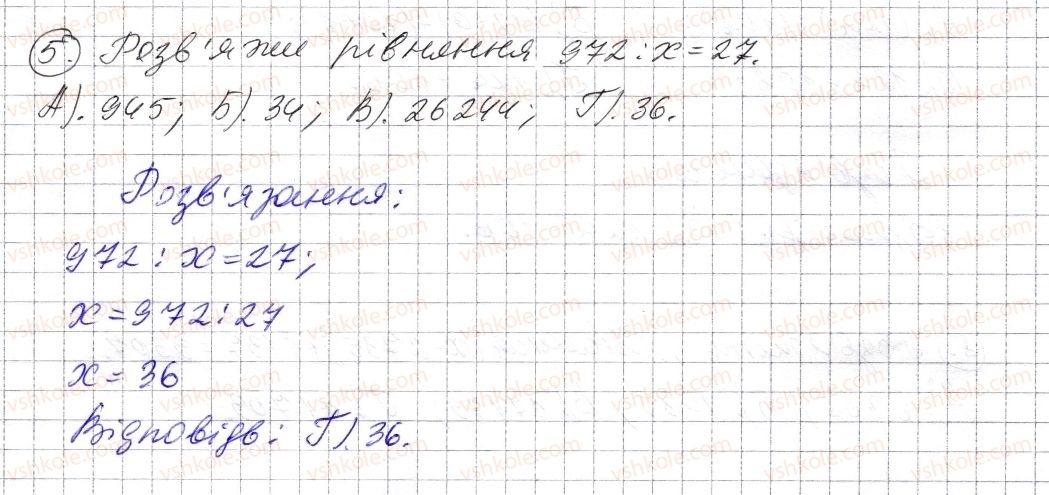 5. Розв'яжи рівняння 972 : x = 27.
А). 945; Б). 34; В). 26244; Г). 36.
Розв'язання:
972 : x = 27;
x = 972 : 27
x = 36
Відповідь: Г). 36.
vshkole.com